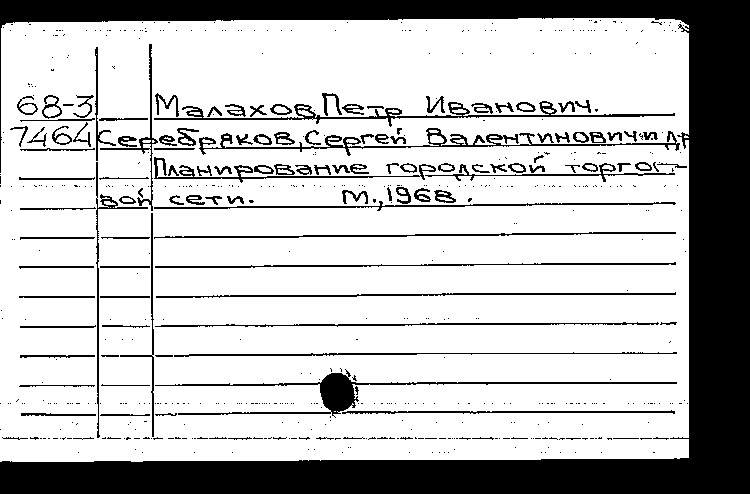 68-3 Малахов, Петр Иванович.
7464 Серебряков, Сергей Валентинович и др
Планирование городской торгов-
вой сети. М., 1968.